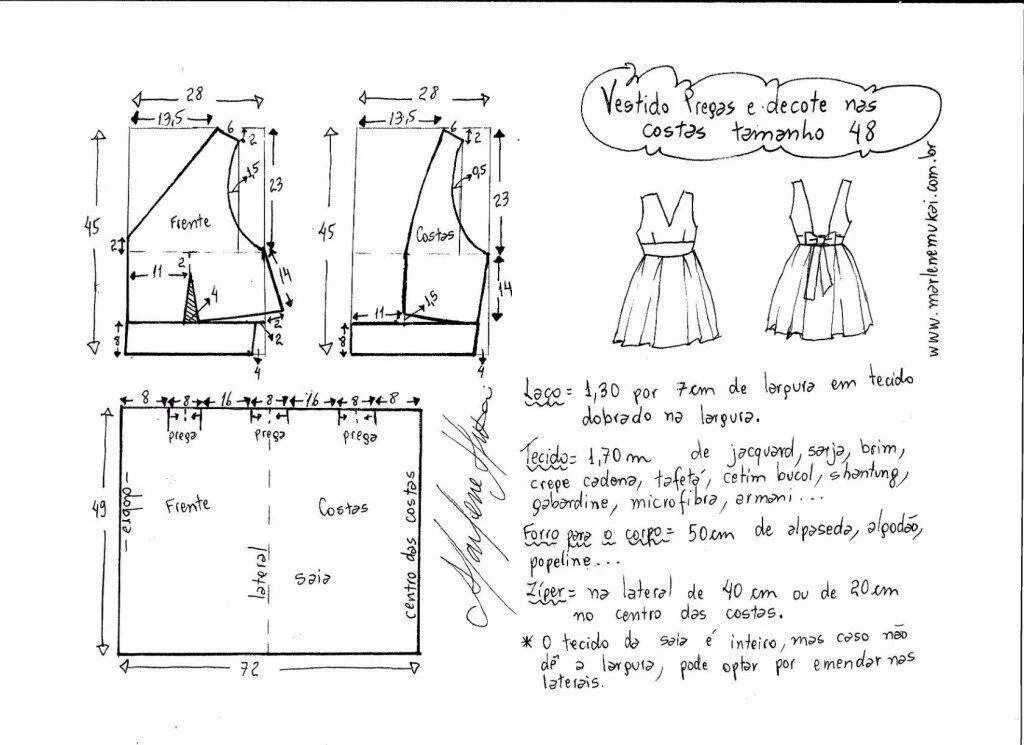 Vestido Pregas e decote nas
costas tamanho 48
www.marlenemukai.com.br
28
13,5
6
2
1,5
23
45
Frente
2
11
2
4
14
2
2
8
4
28
13,5
6
2
0,5
23
45
Costas
11
1,5
14
8
4
8
8
16
8
16
8
8
prega
prega
prega
49
dobra
Frente
Costas
lateral
saia
centro das costas
72
Marlene Mukai
Laço = 1,30 por 7cm de largura em tecido
dobrado na largura.
Tecido = 1,70m de jacquard, sarja, brim,
crepe cadena, tafetá, cetim bucol, shantung,
gabardine, microfibra, armani...
Forro para o corpo = 50cm de alpaseda, algodão,
popeline...
Zíper = na lateral de 40 cm ou de 20cm
no centro das costas.
* O tecido da saia é inteiro, mas caso não
dê a largura, pode optar por emendar nas
laterais.